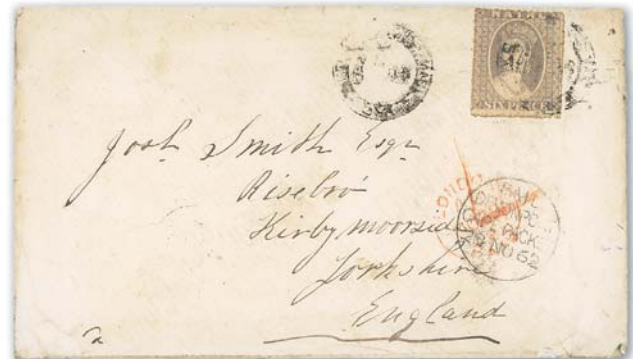 NATAL
SIX PENCE
Josh Smith Esqr
Risebro'
Kirbymoorside
Yorkshire
England
NO 62